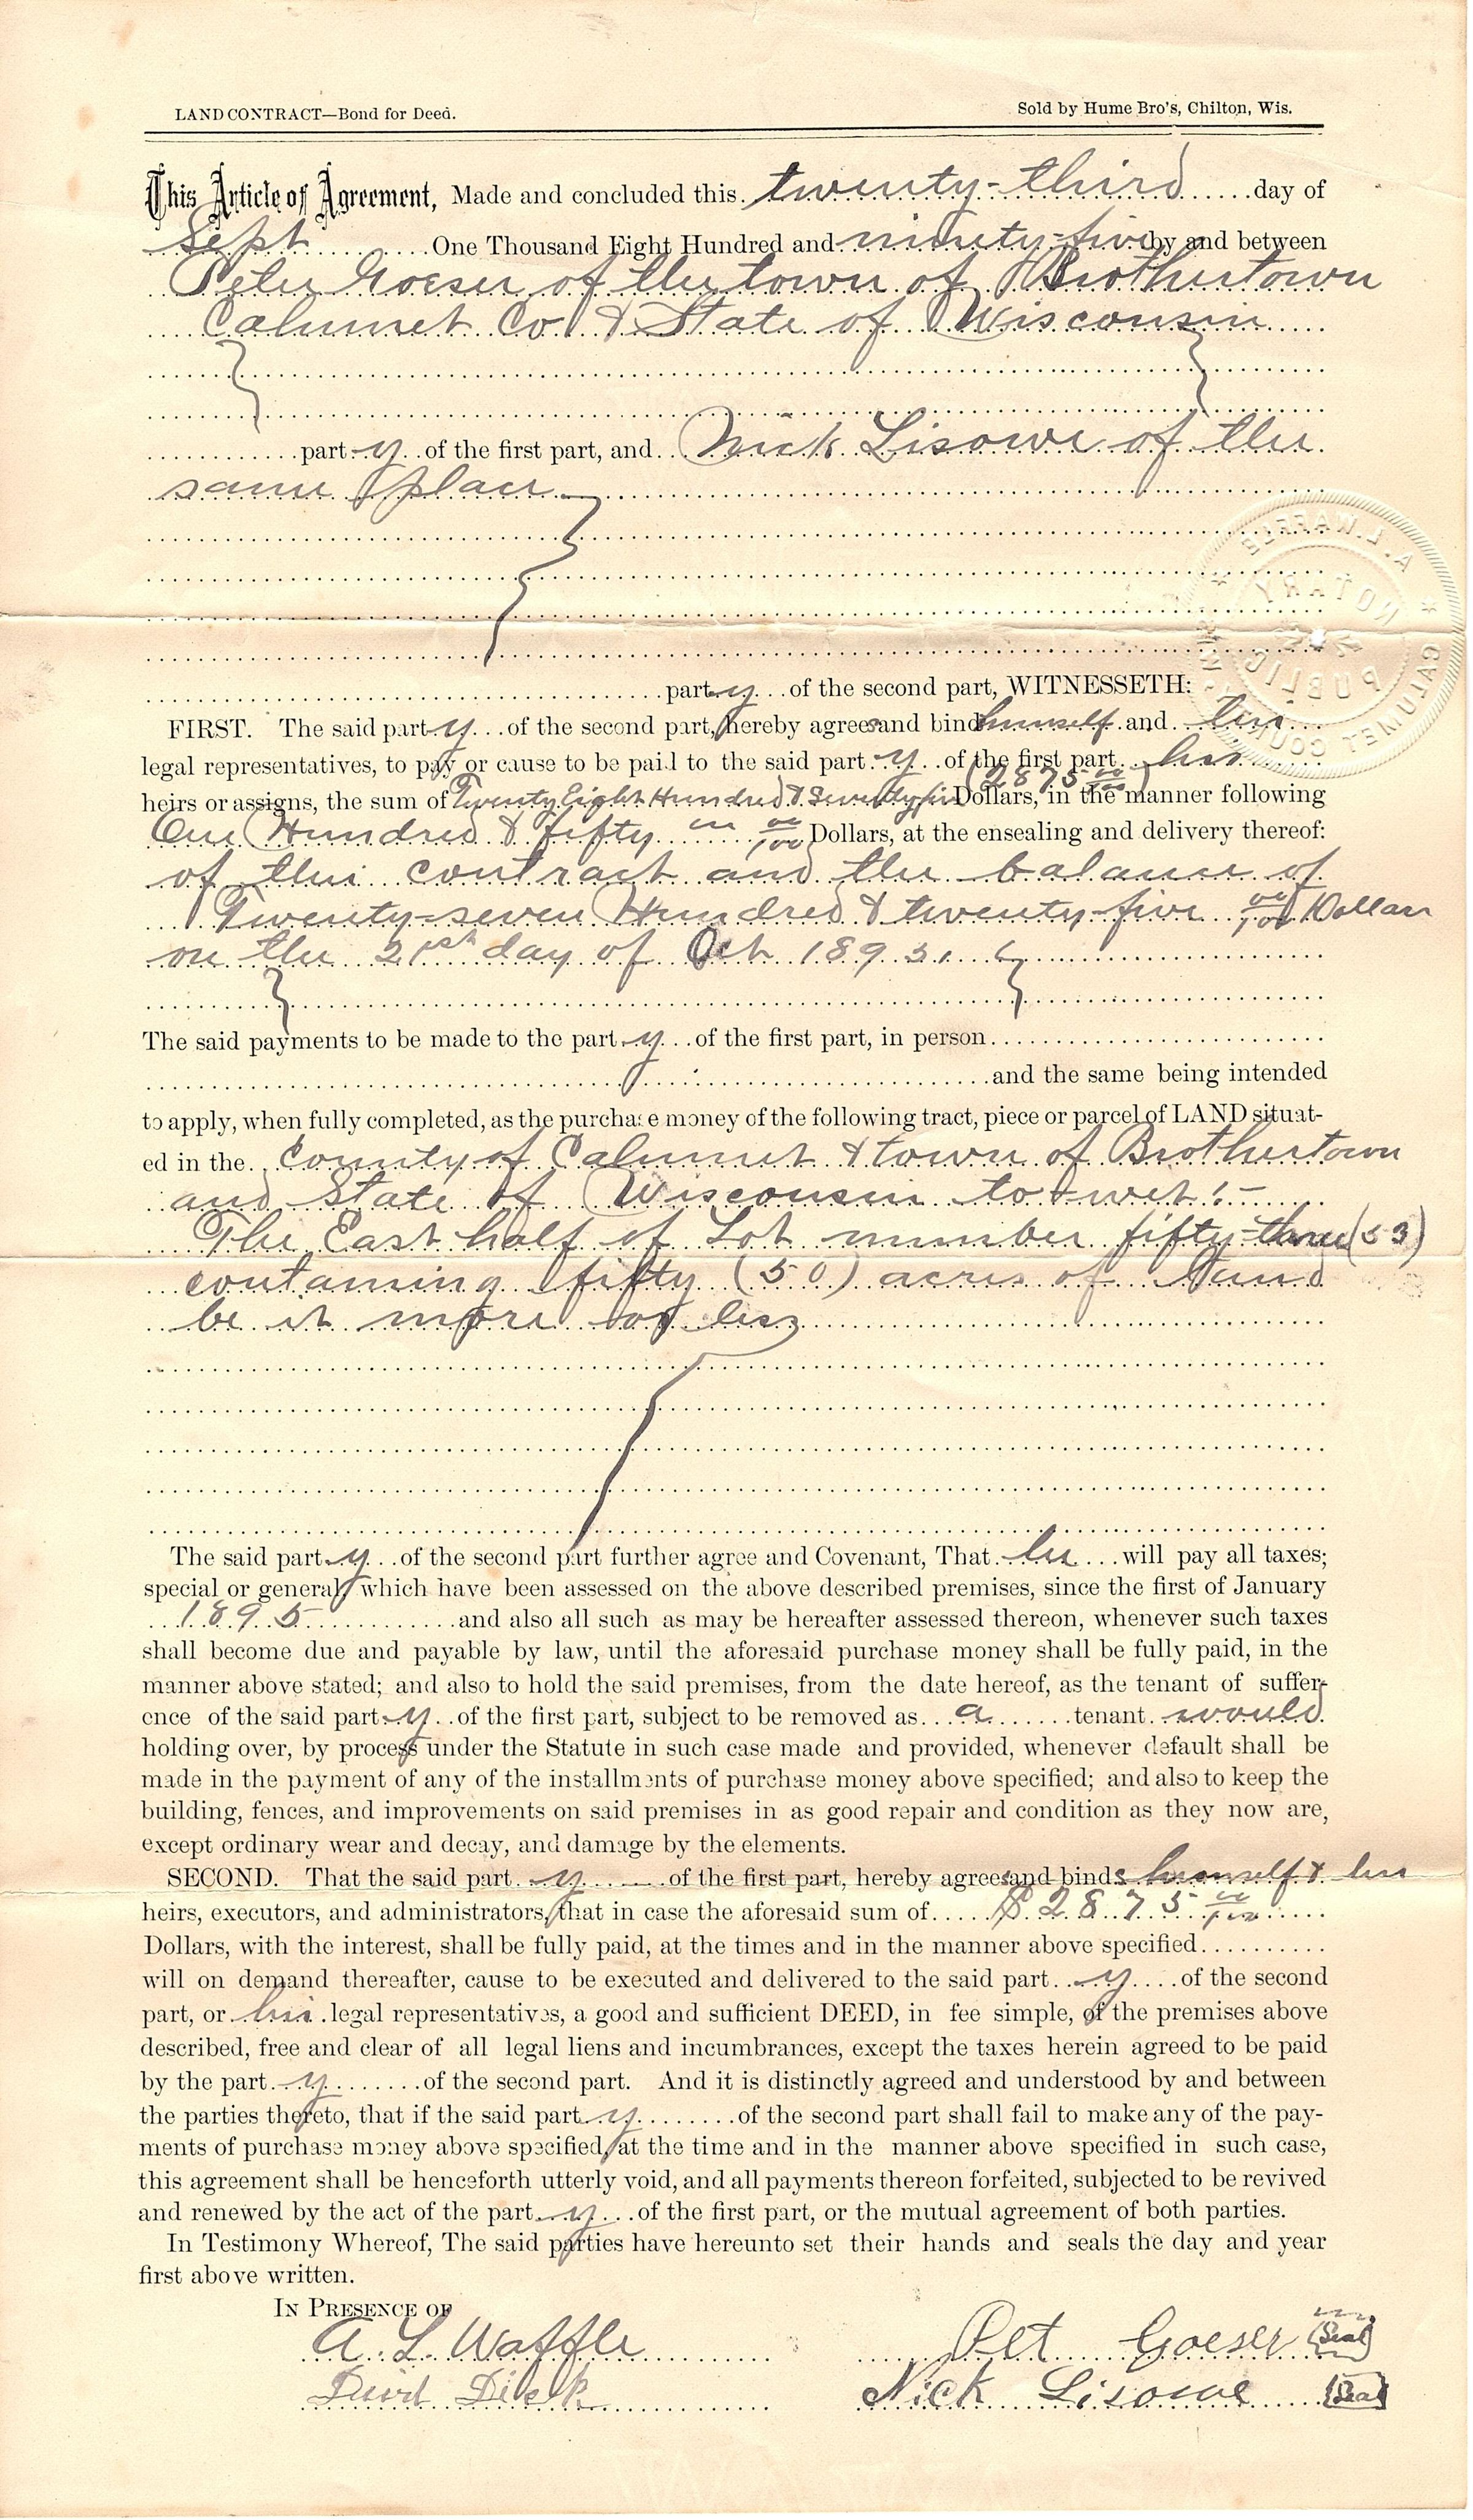 LAND CONTRACT—Bond for Deed.
Sold by Hume Bro's, Chilton, Wis.
This Article of Agreement, Made and concluded this twenty-third day of
Sept One Thousand Eight Hundred and ninety-five by and between
Peter Goeser of the town of Brothertown
Calumet Co & State of Wisconsin
party of the first part, and Nick Lisowe of the
same place
A. L. WAFFLE
NOTARY
PUBLIC
CALUMET COUNTY, WIS.
party of the second part, WITNESSETH:
FIRST. The said party of the second part, hereby agrees and bind himself and his
legal representatives, to pay or cause to be paid to the said party of the first part his
heirs or assigns, the sum of Twenty Eight Hundred & Seventy five (2875 00/100) Dollars, in the manner following
One Hundred & fifty 00/100 Dollars, at the ensealing and delivery thereof:
of this contract and the balance of
Twenty-seven Hundred & twenty-five 00/100 Dollars
on the 21st day of Oct 1895.
The said payments to be made to the party of the first part, in person
and the same being intended
to apply, when fully completed, as the purchase money of the following tract, piece or parcel of LAND situat-
ed in the County of Calumet & town of Brothertown
and State of Wisconsin to-wit:-
The East half of Lot number fifty-three (53)
containing fifty (50) acres of land
be it more or less
The said party of the second part further agree and Covenant, That he will pay all taxes;
special or general, which have been assessed on the above described premises, since the first of January
1895 and also all such as may be hereafter assessed thereon, whenever such taxes
shall become due and payable by law, until the aforesaid purchase money shall be fully paid, in the
manner above stated; and also to hold the said premises, from the date hereof, as the tenant of suffer-
ence of the said party of the first part, subject to be removed as a tenant would
holding over, by process under the Statute in such case made and provided, whenever default shall be
made in the payment of any of the installments of purchase money above specified; and also to keep the
building, fences, and improvements on said premises in as good repair and condition as they now are,
except ordinary wear and decay, and damage by the elements.
SECOND. That the said party of the first part, hereby agrees and binds himself & his
heirs, executors, and administrators, that in case the aforesaid sum of $2875 00/100
Dollars, with the interest, shall be fully paid, at the times and in the manner above specified
will on demand thereafter, cause to be executed and delivered to the said party of the second
part, or his legal representatives, a good and sufficient DEED, in fee simple, of the premises above
described, free and clear of all legal liens and incumbrances, except the taxes herein agreed to be paid
by the party of the second part. And it is distinctly agreed and understood by and between
the parties thereto, that if the said party of the second part shall fail to make any of the pay-
ments of purchase money above specified, at the time and in the manner above specified in such case,
this agreement shall be henceforth utterly void, and all payments thereon forfeited, subjected to be revived
and renewed by the act of the party of the first part, or the mutual agreement of both parties.
In Testimony Whereof, The said parties have hereunto set their hands and seals the day and year
first above written.
IN PRESENCE OF
A. L. Waffle Pet Goeser (Seal)
Dick Nick Lisowe (Seal)